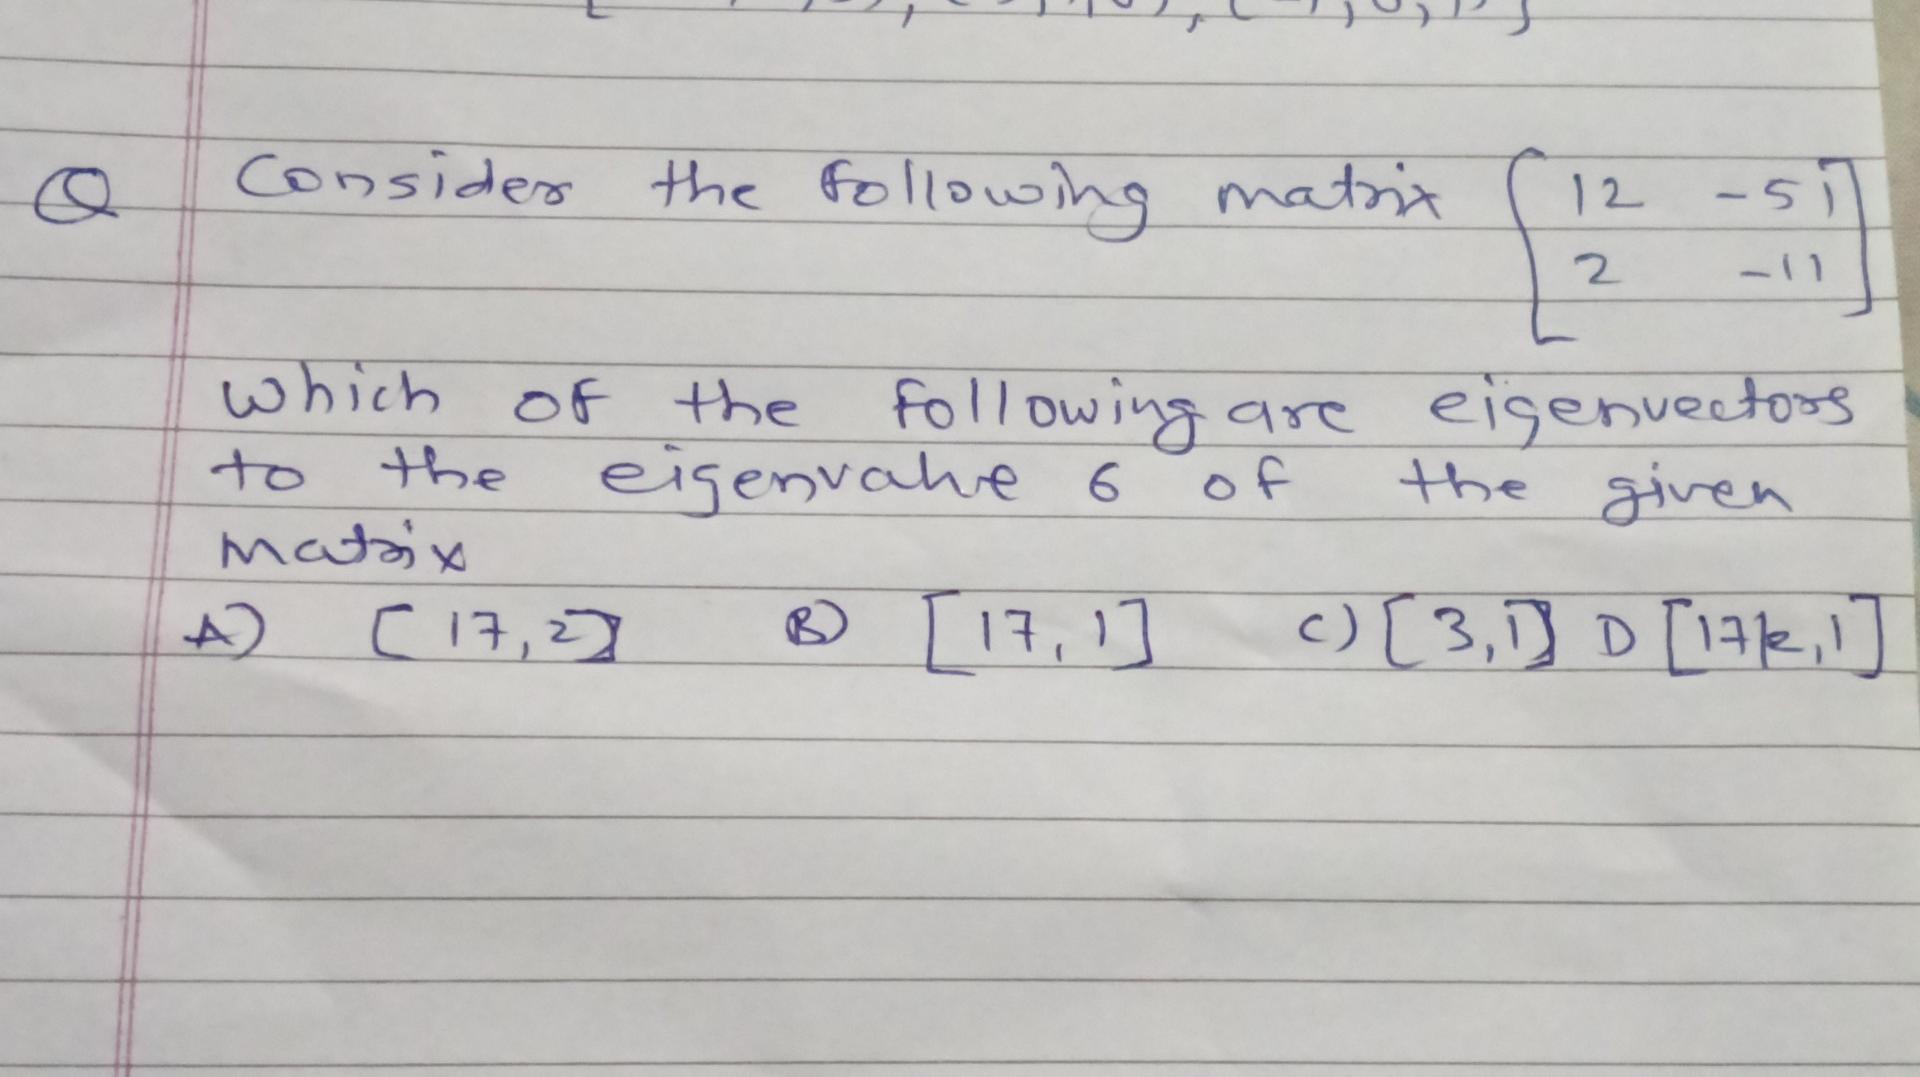 Q Consider the following matrix [12 -51
2 -11]
which of the following are eigenvectors
to the eigenvalue 6 of the given
matrix
A) [17,2] B) [17,1] C) [3,1] D [17/2,1]